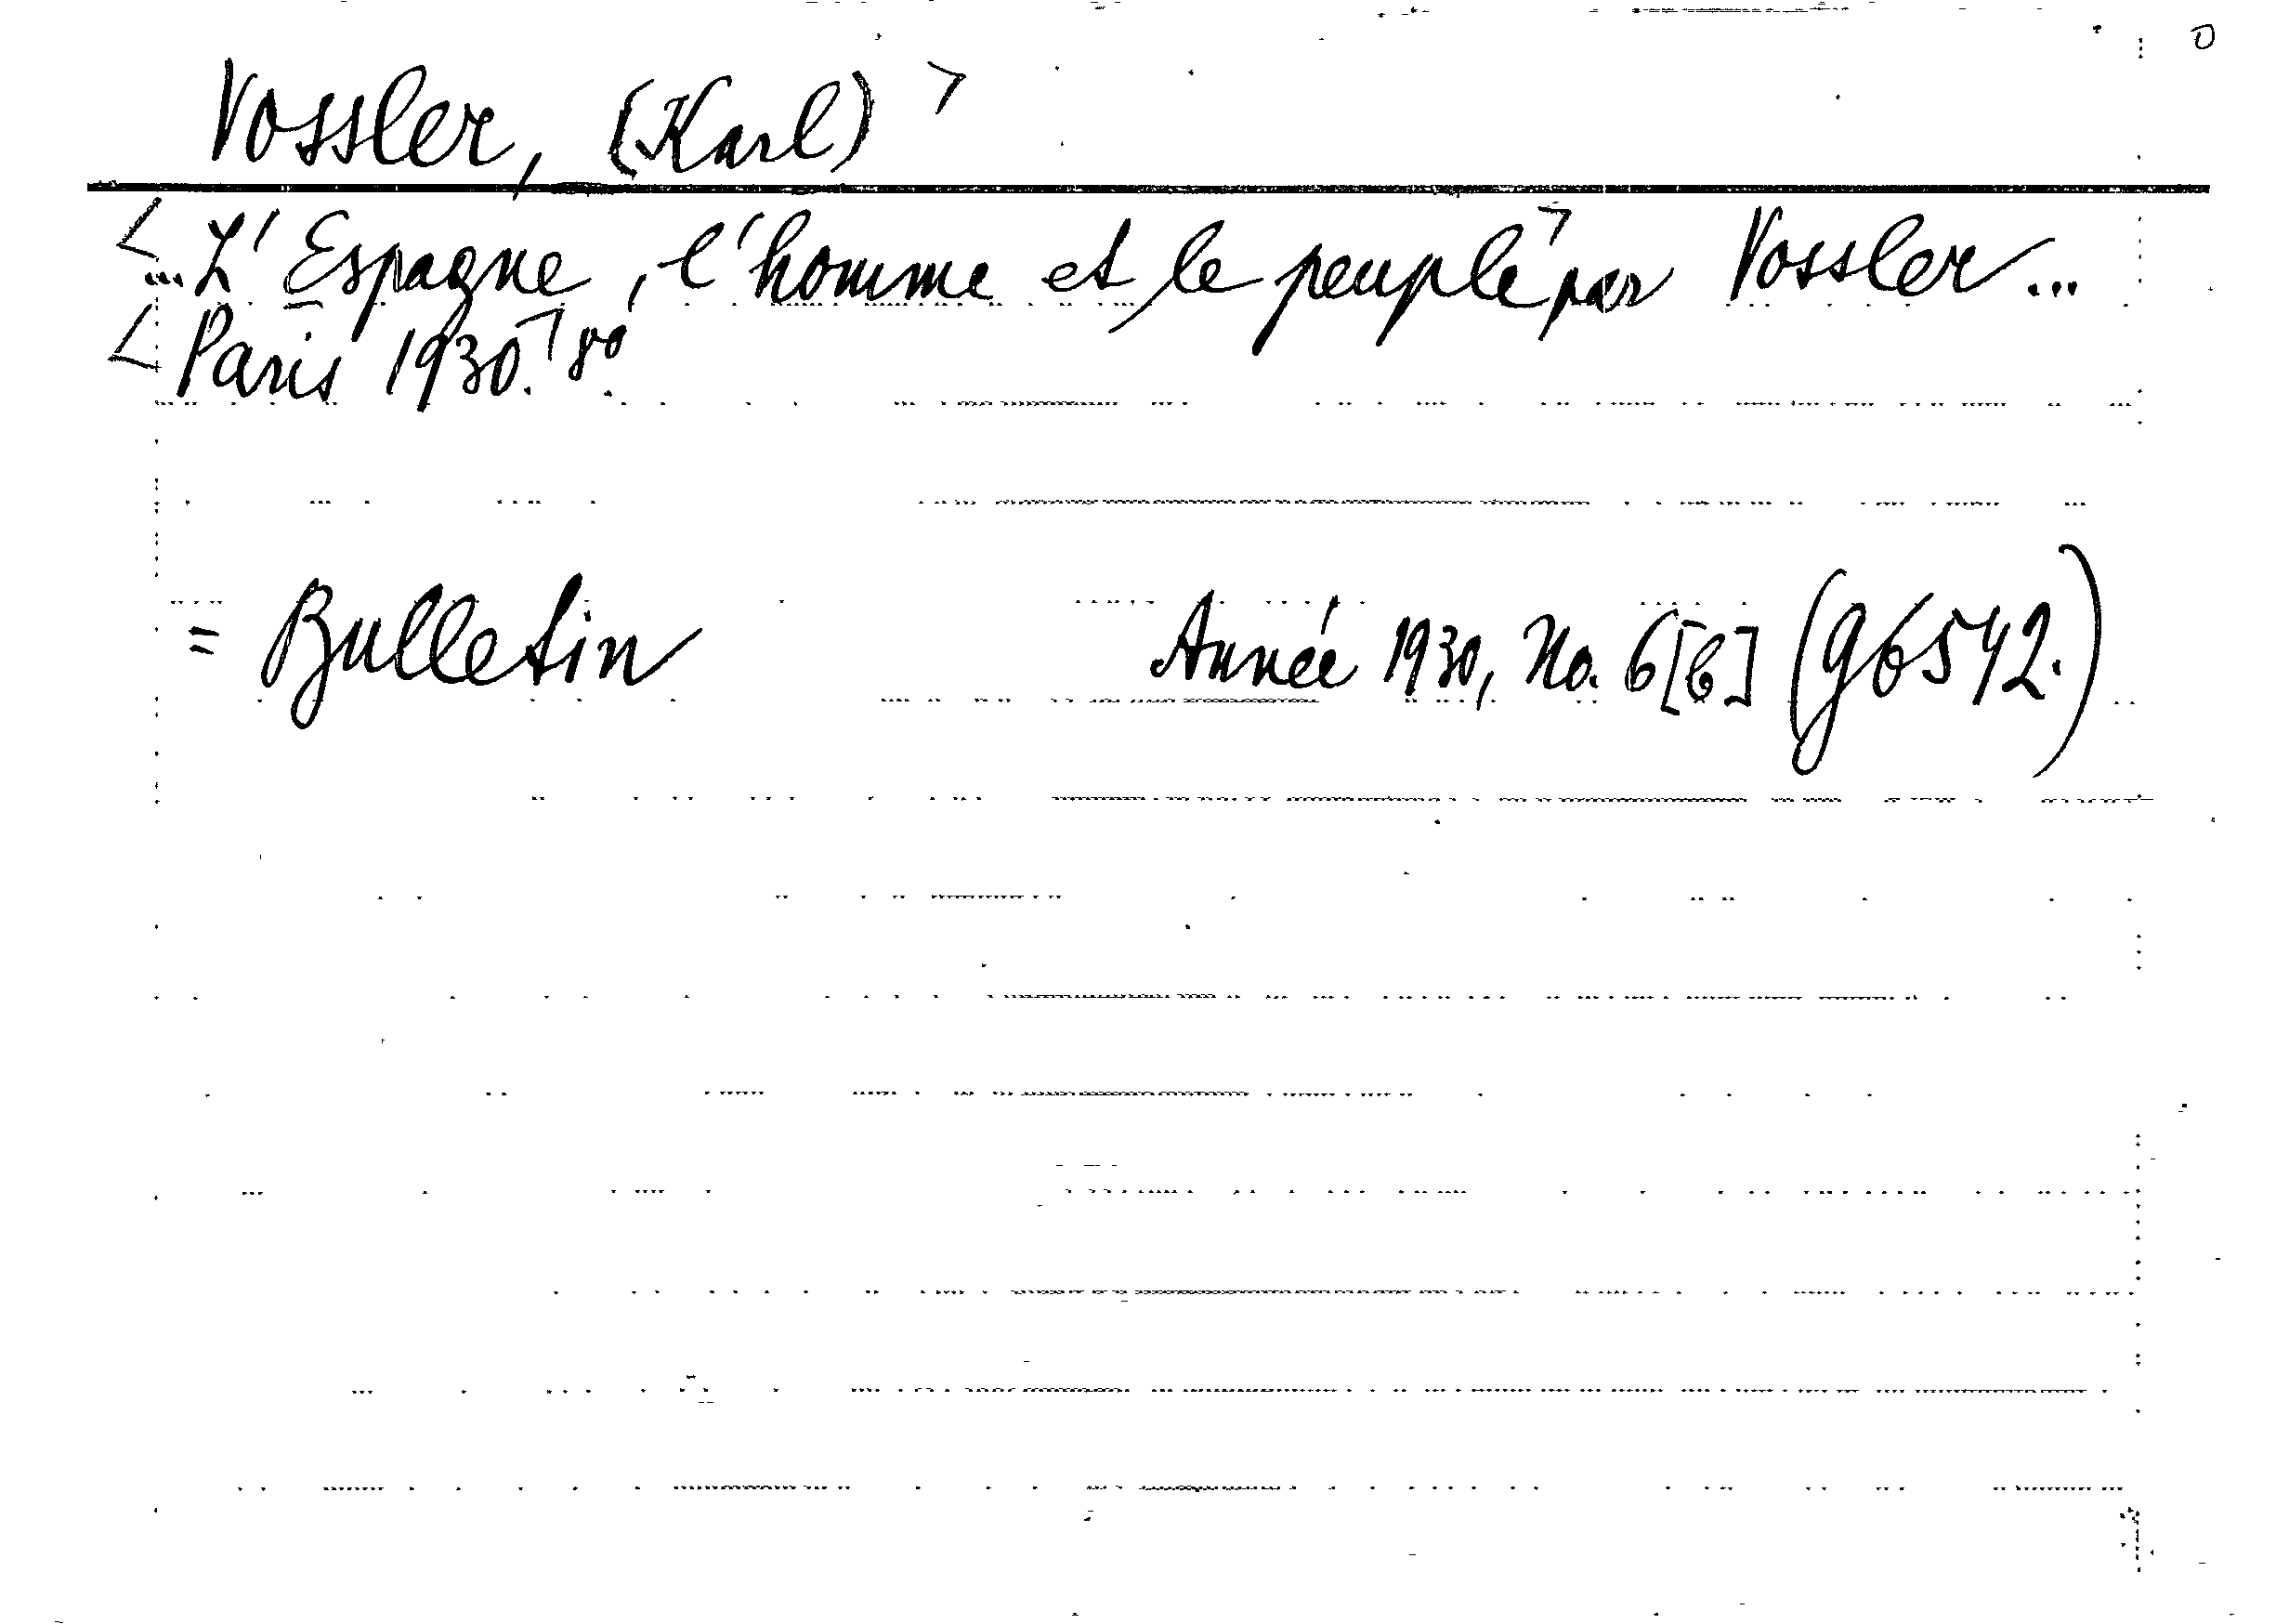 Vossler, (Karl) >
< ... L' Espagne, l'homme et le peuple > par Vossler ...
< Paris 1930. > 8º.
= Bulletin Année 1930, No. 6[b] (g6542.)